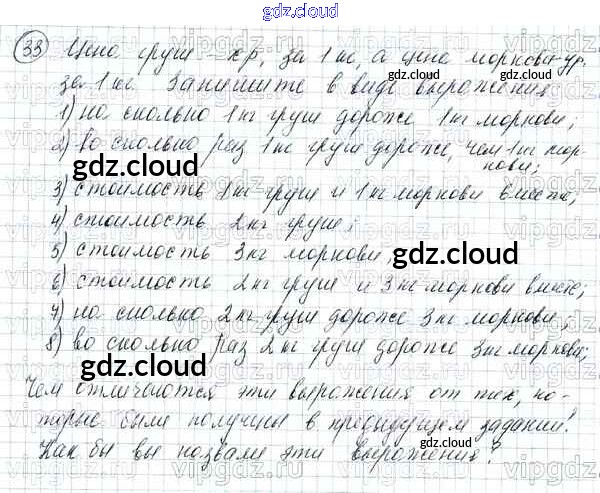 gdz.cloud
33) Цена груш х р. за 1 кг, а цена моркови у р.
за 1 кг. Запишите в виде выражения
1) на сколько 1 кг груш дороже 1 кг моркови;
2) во сколько раз 1 кг груш дороже, чем 1 кг мор-
кови;
3) стоимость 1 кг груш и 1 кг моркови вместе;
4) стоимость 2 кг груш;
5) стоимость 3 кг моркови;
6) стоимость 2 кг груш и 3 кг моркови вместе;
7) на сколько 2 кг груш дороже 3 кг моркови;
8) во сколько раз 2 кг груш дороже 3 кг моркови;
Чем отличаются эти выражения от тех, ко-
торые были получены в предыдущем задании?
Как бы вы назвали эти выражения?
gdz.cloud